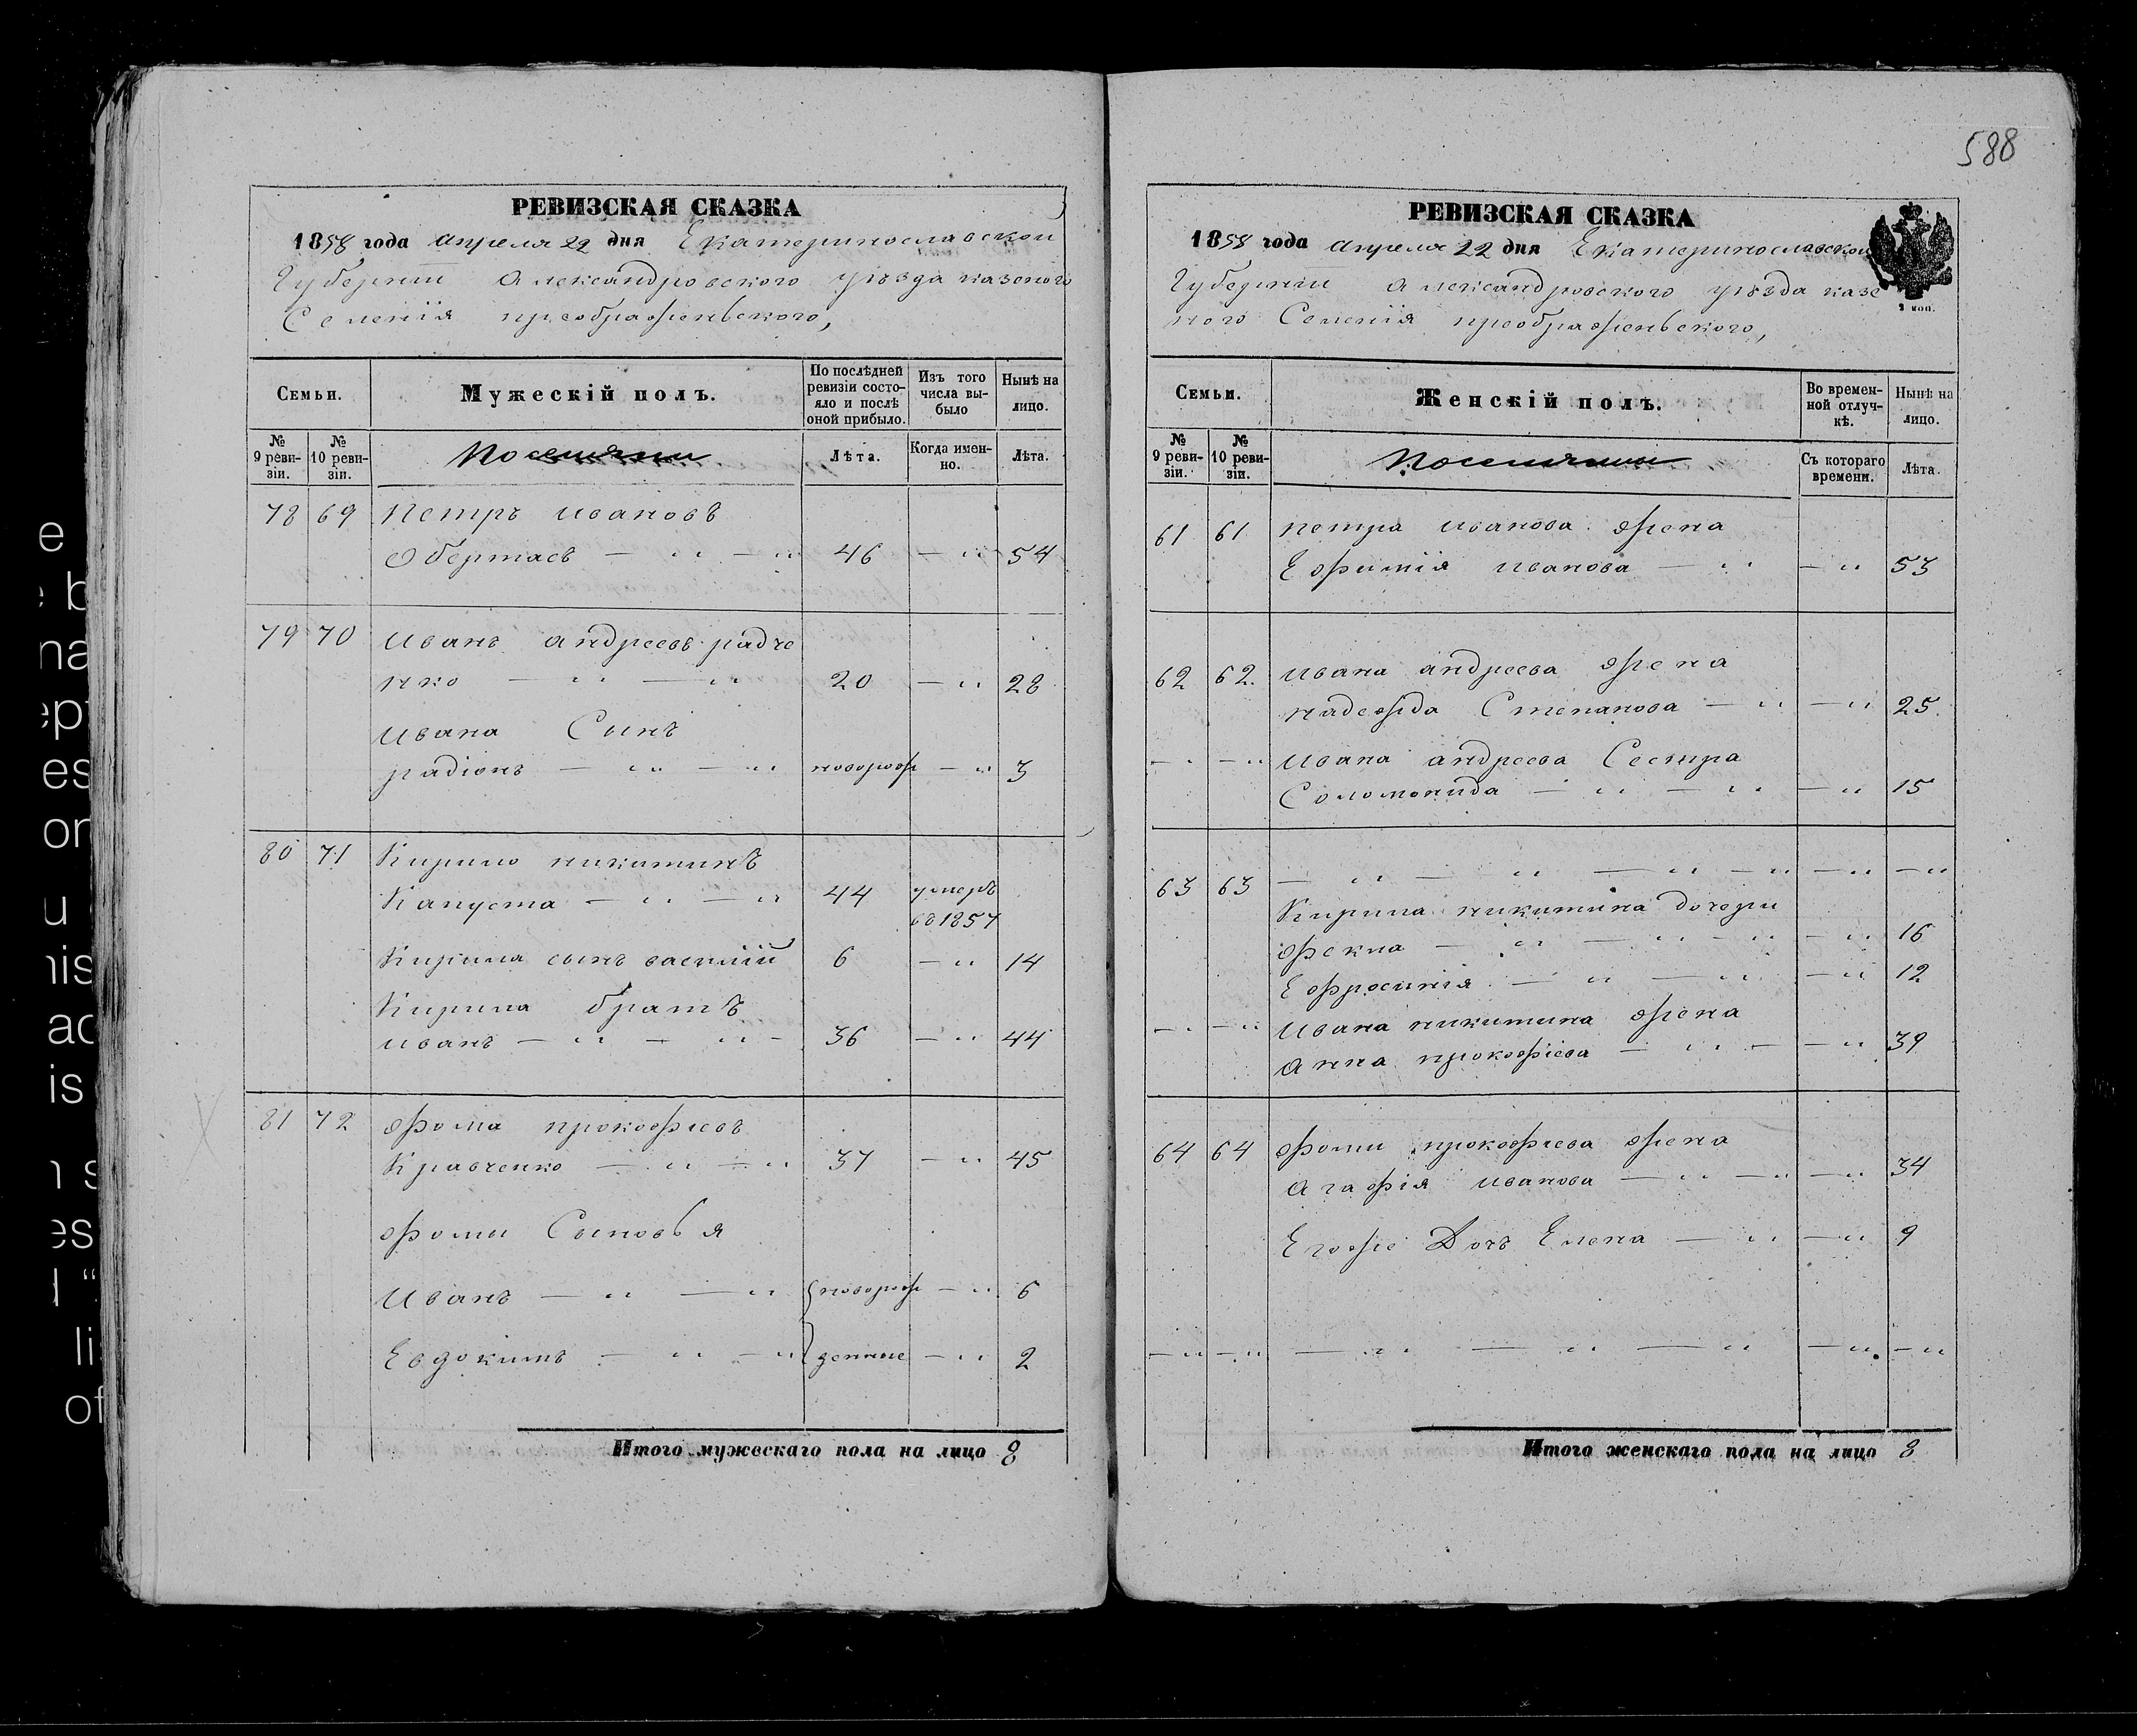 588
РЕВИЗСКАЯ СКАЗКА
1858 года апреля 22 дня Екатеринославской
Губернии александровского уезда казеного
Селенiя преображеньского,
Семьи.
Мужескій полъ.
По послѣдней ревизіи состо-
яло и послѣ оной прибыло.
Изъ того числа вы-
было
Нынѣ на лицо.
№ 9 реви-
зіи.
№ 10 реви-
зіи.
Поселяни
Лѣта.
Когда имен-
но.
Лѣта.
78 69 Петръ ивановъ
Обертасъ — „ — „ 46 — „ 54
79 70 иванъ андреевъ радче
нко — „ — „ 20 — „ 28
ивана Сынъ
радіонъ — „ — „ новорож — „ 3
80 71 Кирило никитинъ
Капуста — „ — „ 44 умеръ
въ 1857
Кирила сынъ василій 6 — „ 14
Кирила братъ
иванъ — „ — „ - 36 — „ 44
81 72 фома прокофіевъ
Кравченко — „ — „ 37 — „ 45
фомы Сыновья
иванъ — „ — „ новорож — „ 6
Евдокимъ — „ — „ денные — „ 2
Итого мужескаго пола на лицо 8
РЕВИЗСКАЯ СКАЗКА
1858 года апреля 22 дня Екатеринославской
Губернии александровского уезда казе
ного Селенiя преображеньского,
2 коп.
Семьи.
Женскій полъ.
Во времен-
ной отлуч-
кѣ.
Нынѣ на лицо.
№ 9 реви-
зіи.
№ 10 реви-
зіи.
Поселяни
Съ котораго времени.
Лѣта.
61 61 петра иванова жена
Ефимія иванова — „ — „ 53
62 62 ивана андреева жена
надежда Степанова — „ — „ 25
— „ — „ ивана андреева Сестра
Соломонида — „ — „ — „ 15
63 63 — „ — „ — „ — „ — „ — „
Кирила никитина дочери
фекла — „ — „ — „ — „ 16
Ефросинія — „ — „ — „ 12
— „ — „ ивана никитина жена
анна прокофіева — „ — — „ 39
64 64 фомы прокофіева жена
агафія иванова — „ — „ — „ 34
Егоже Дочь Елена — „ — „ 9
— „ — „ — „ — „ — „ — „ — „
Итого женскаго пола на лицо 8